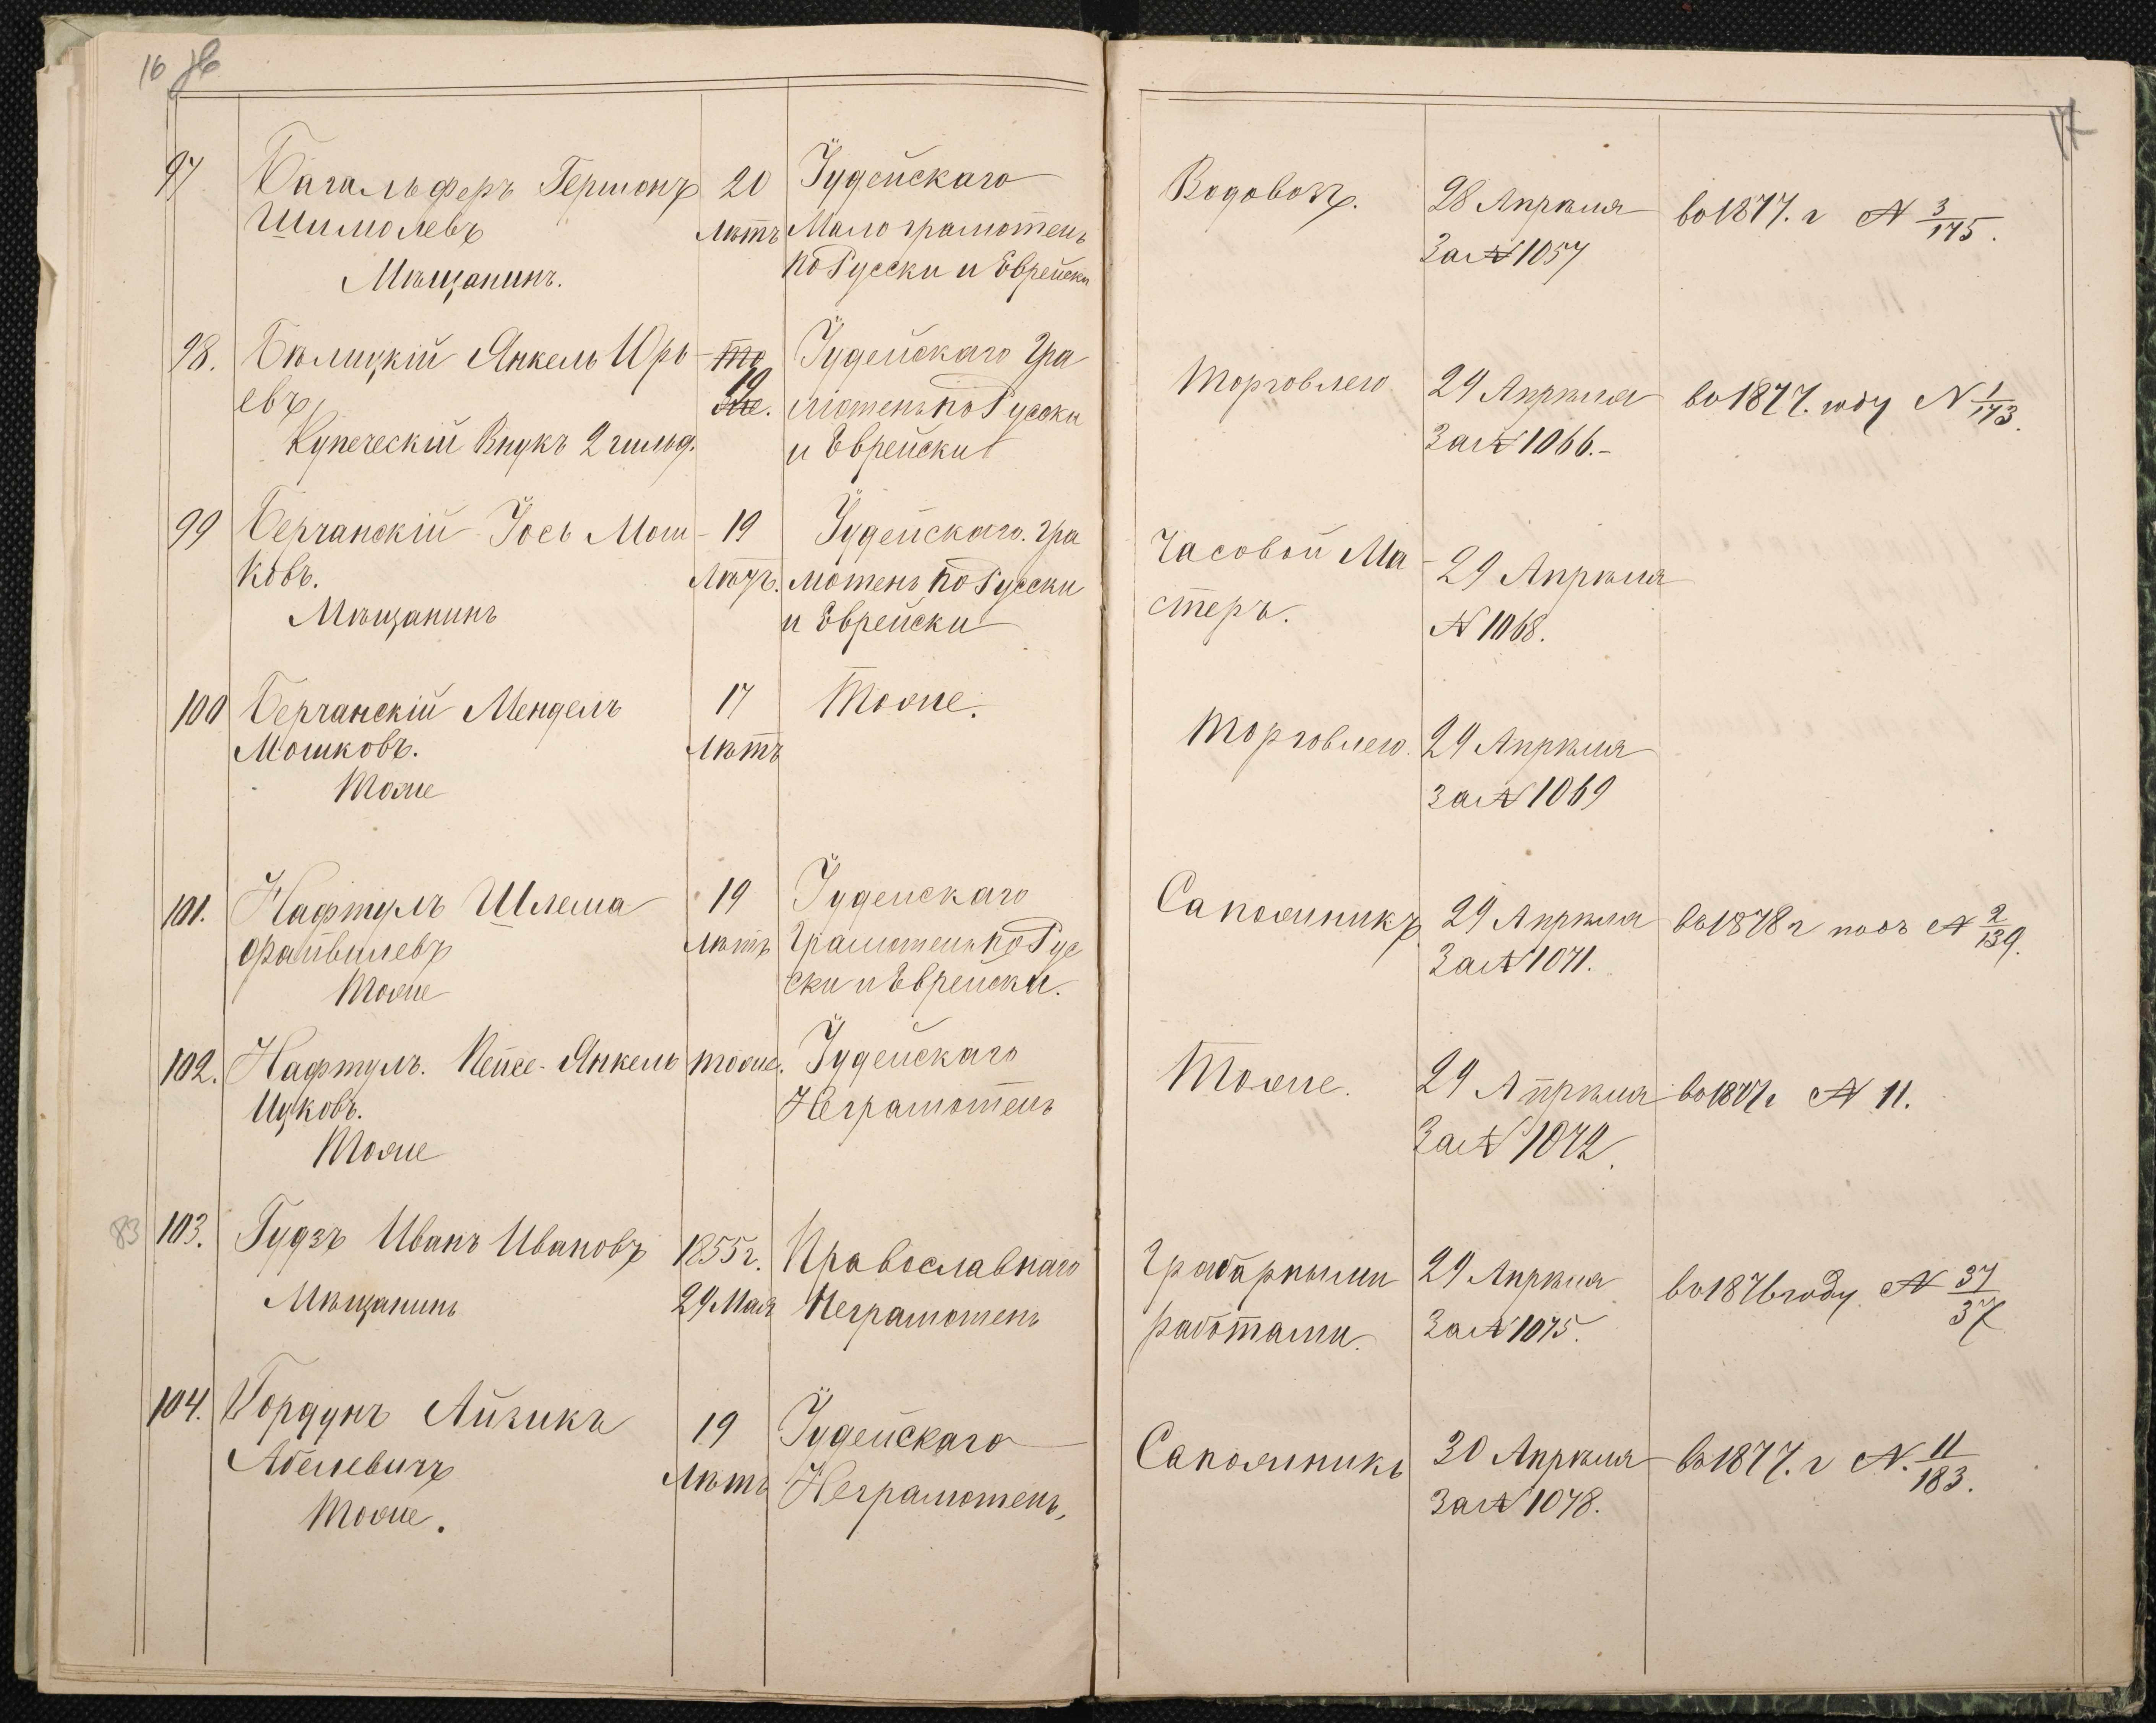 16
97 Багальферъ Гершонъ 20 Іудейскаго
Шимолевъ Лѣтъ Мало грамотенъ
Мѣщанинъ. по Русски и Еврейски
98. Бѣлицкій Янкель Юрь- то Іудейскаго Гра
евъ, 19 мотенъ по Русски
Купеческій Внукъ 2 гильд. и Еврейски
99 Берчанскій Іось Мош- 19 Іудейскаго. Гра
ковъ. Лѣтъ. мотенъ по Русски
Мѣщанинъ и Еврейски
100 Берчанскій Мендель 17 Тоже.
Мошковъ. Лѣтъ
Тоже
101. Нафтулъ Шлема 19 Іудейскаго
Файвилевъ Лѣтъ Грамотенъ по Рус
Тоже ски и Еврейски.
102. Нафтулъ. Кейсе-Янкель тоже. Іудейскаго
Ицковъ. Неграмотенъ
Тоже
83 103. Гудзъ Иванъ Ивановъ 1855 г. Православнаго
Мѣщанинъ 29 Мая Неграмотенъ
104. Гордунъ Айзикъ 19 Іудейскаго
Абелевичъ Лѣтъ Неграмотенъ,
Тоже.
17
Водовозъ. 28 Апрѣля во 1877. г № 3/175.
За № 1057
Торговлею 29 Апрѣля во 1877. году № 1/173.
За № 1066.-
Часовой Ма- 29 Апрѣля
стеръ. № 1068.
Торговлею. 29 Апрѣля
За № 1069
Сапожникъ 29 Апрѣля въ 1878 г подъ № 2/139.
За № 1071.
Тоже. 29 Апрѣля во 1877 г № 11.
За № 1072.
Грабарными 29 Апрѣля во 1876 году № 37/37
работами. За № 1075.
Сапожникъ 30 Апрѣля въ 1877. г №. 11/183.
За № 1078.